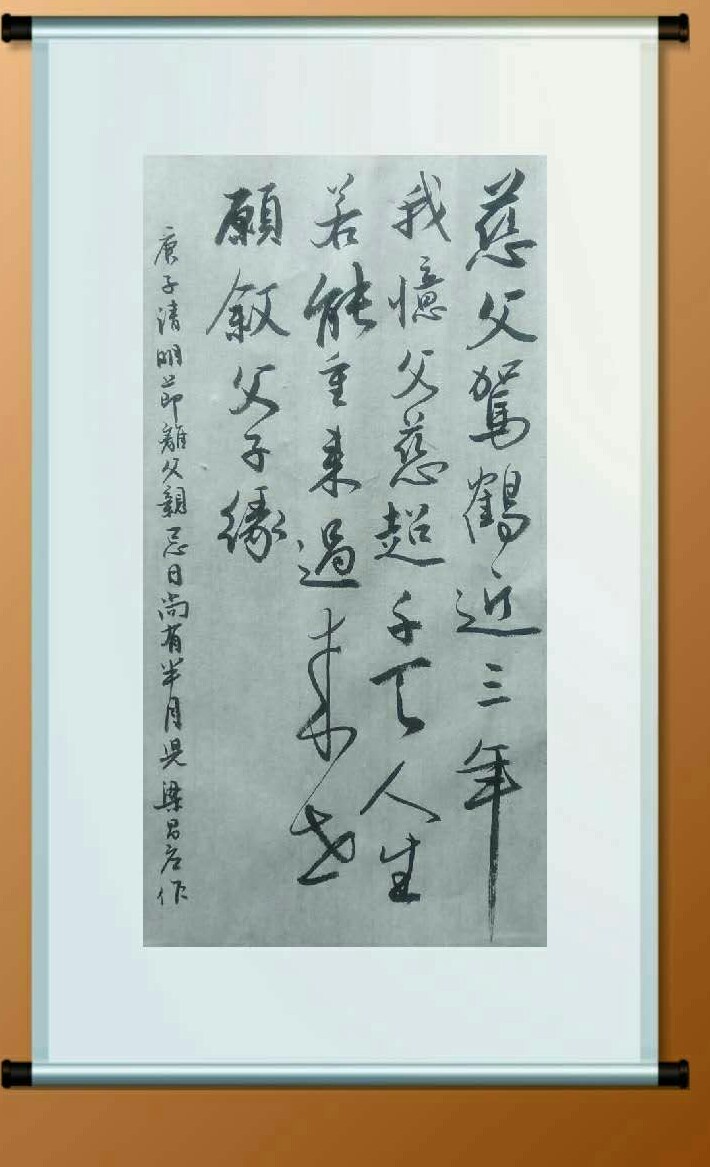 慈父駕鶴近三年
我憶父慈超千天人生
若能重來過来世
願敘父子緣
庚子清明節離父親忌日尚有半月兒梁昌启作